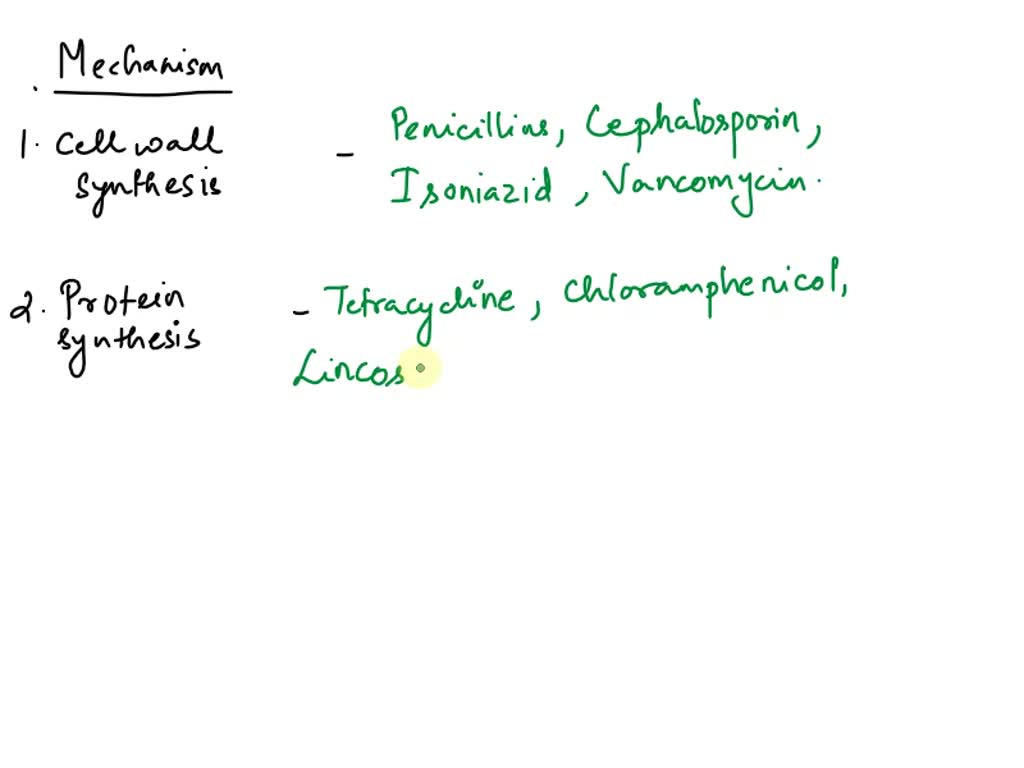 Mechanism
1. Cell wall synthesis - Penicillins, Cephalosporin,
Isoniazid, Vancomycin.
2. Protein synthesis - Tetracycline, Chloramphenicol,
Lincos